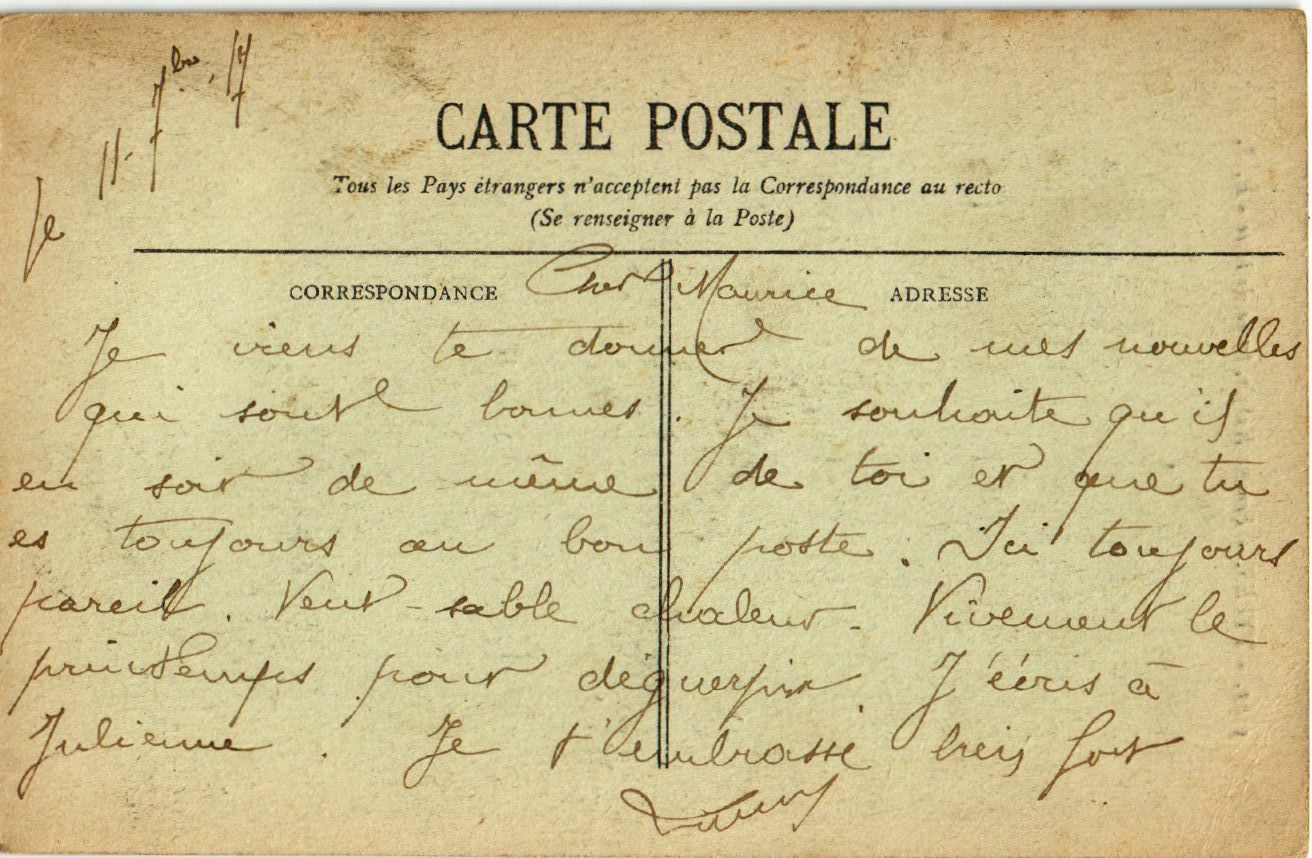 Je 11-7bre, 17
CARTE POSTALE
Tous les Pays étrangers n'acceptent pas la Correspondance au recto
(Se renseigner à la Poste)
CORRESPONDANCE Cher Maurice ADRESSE
Je viens te donner de mes nouvelles
qui sont bonnes. Je souhaite qu'il
en soit de même de toi et que tu
es toujours au bon poste. Ici toujours
pareil. Vent - sable chaleur - Vivement le
printemps pour déguerpir. J'écris à
Julienne. Je t'embrasse bien fort